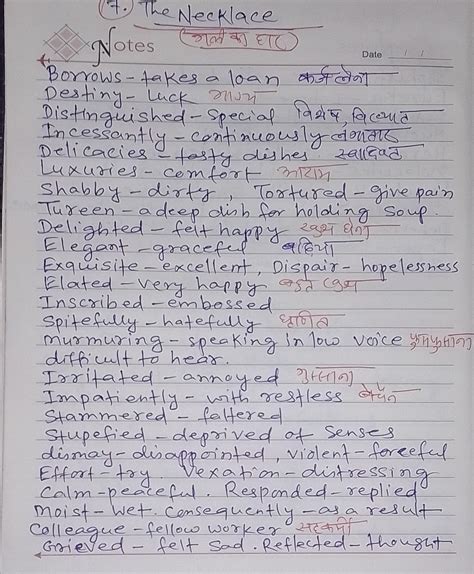 7. The Necklace
गले का हार
Notes
Date / /
Borrows - takes a loan कर्ज लेना
Destiny - Luck भाग्य
Distinguished - special विशेष, विख्यात
Incessantly - continuously लगातार
Delicacies - tasty dishes स्वादिष्ट
Luxuries - comfort आराम
Shabby - dirty, Tortured - give pain
Tureen - a deep dish for holding soup.
Delighted - felt happy खुश होना
Elegant - graceful बढ़िया
Exquisite - excellent, Dispair - hopelessness
Elated - very happy बहुत खुश
Inscribed - embossed
Spitefully - hatefully घृणित
Murmuring - speaking in low voice फुसफुसाना
difficult to hear.
Irritated - annoyed गुस्साना
Impatiently - with restless बेचैन
Stammered - faltered
Stupefied - deprived of senses
dismay - disappointed, violent - forceful
Effort - try. Vexation - distressing
Calm - peaceful. Responded - replied
Moist - wet. Consequently - as a result
Colleague - fellow worker सहकर्मी
Grieved - felt sad. Reflected - thought